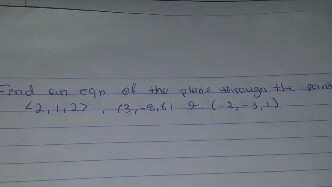 Find an eqn of the plane through the point
<2,1,2>, (3,-8,6) & (-2,-3,1)